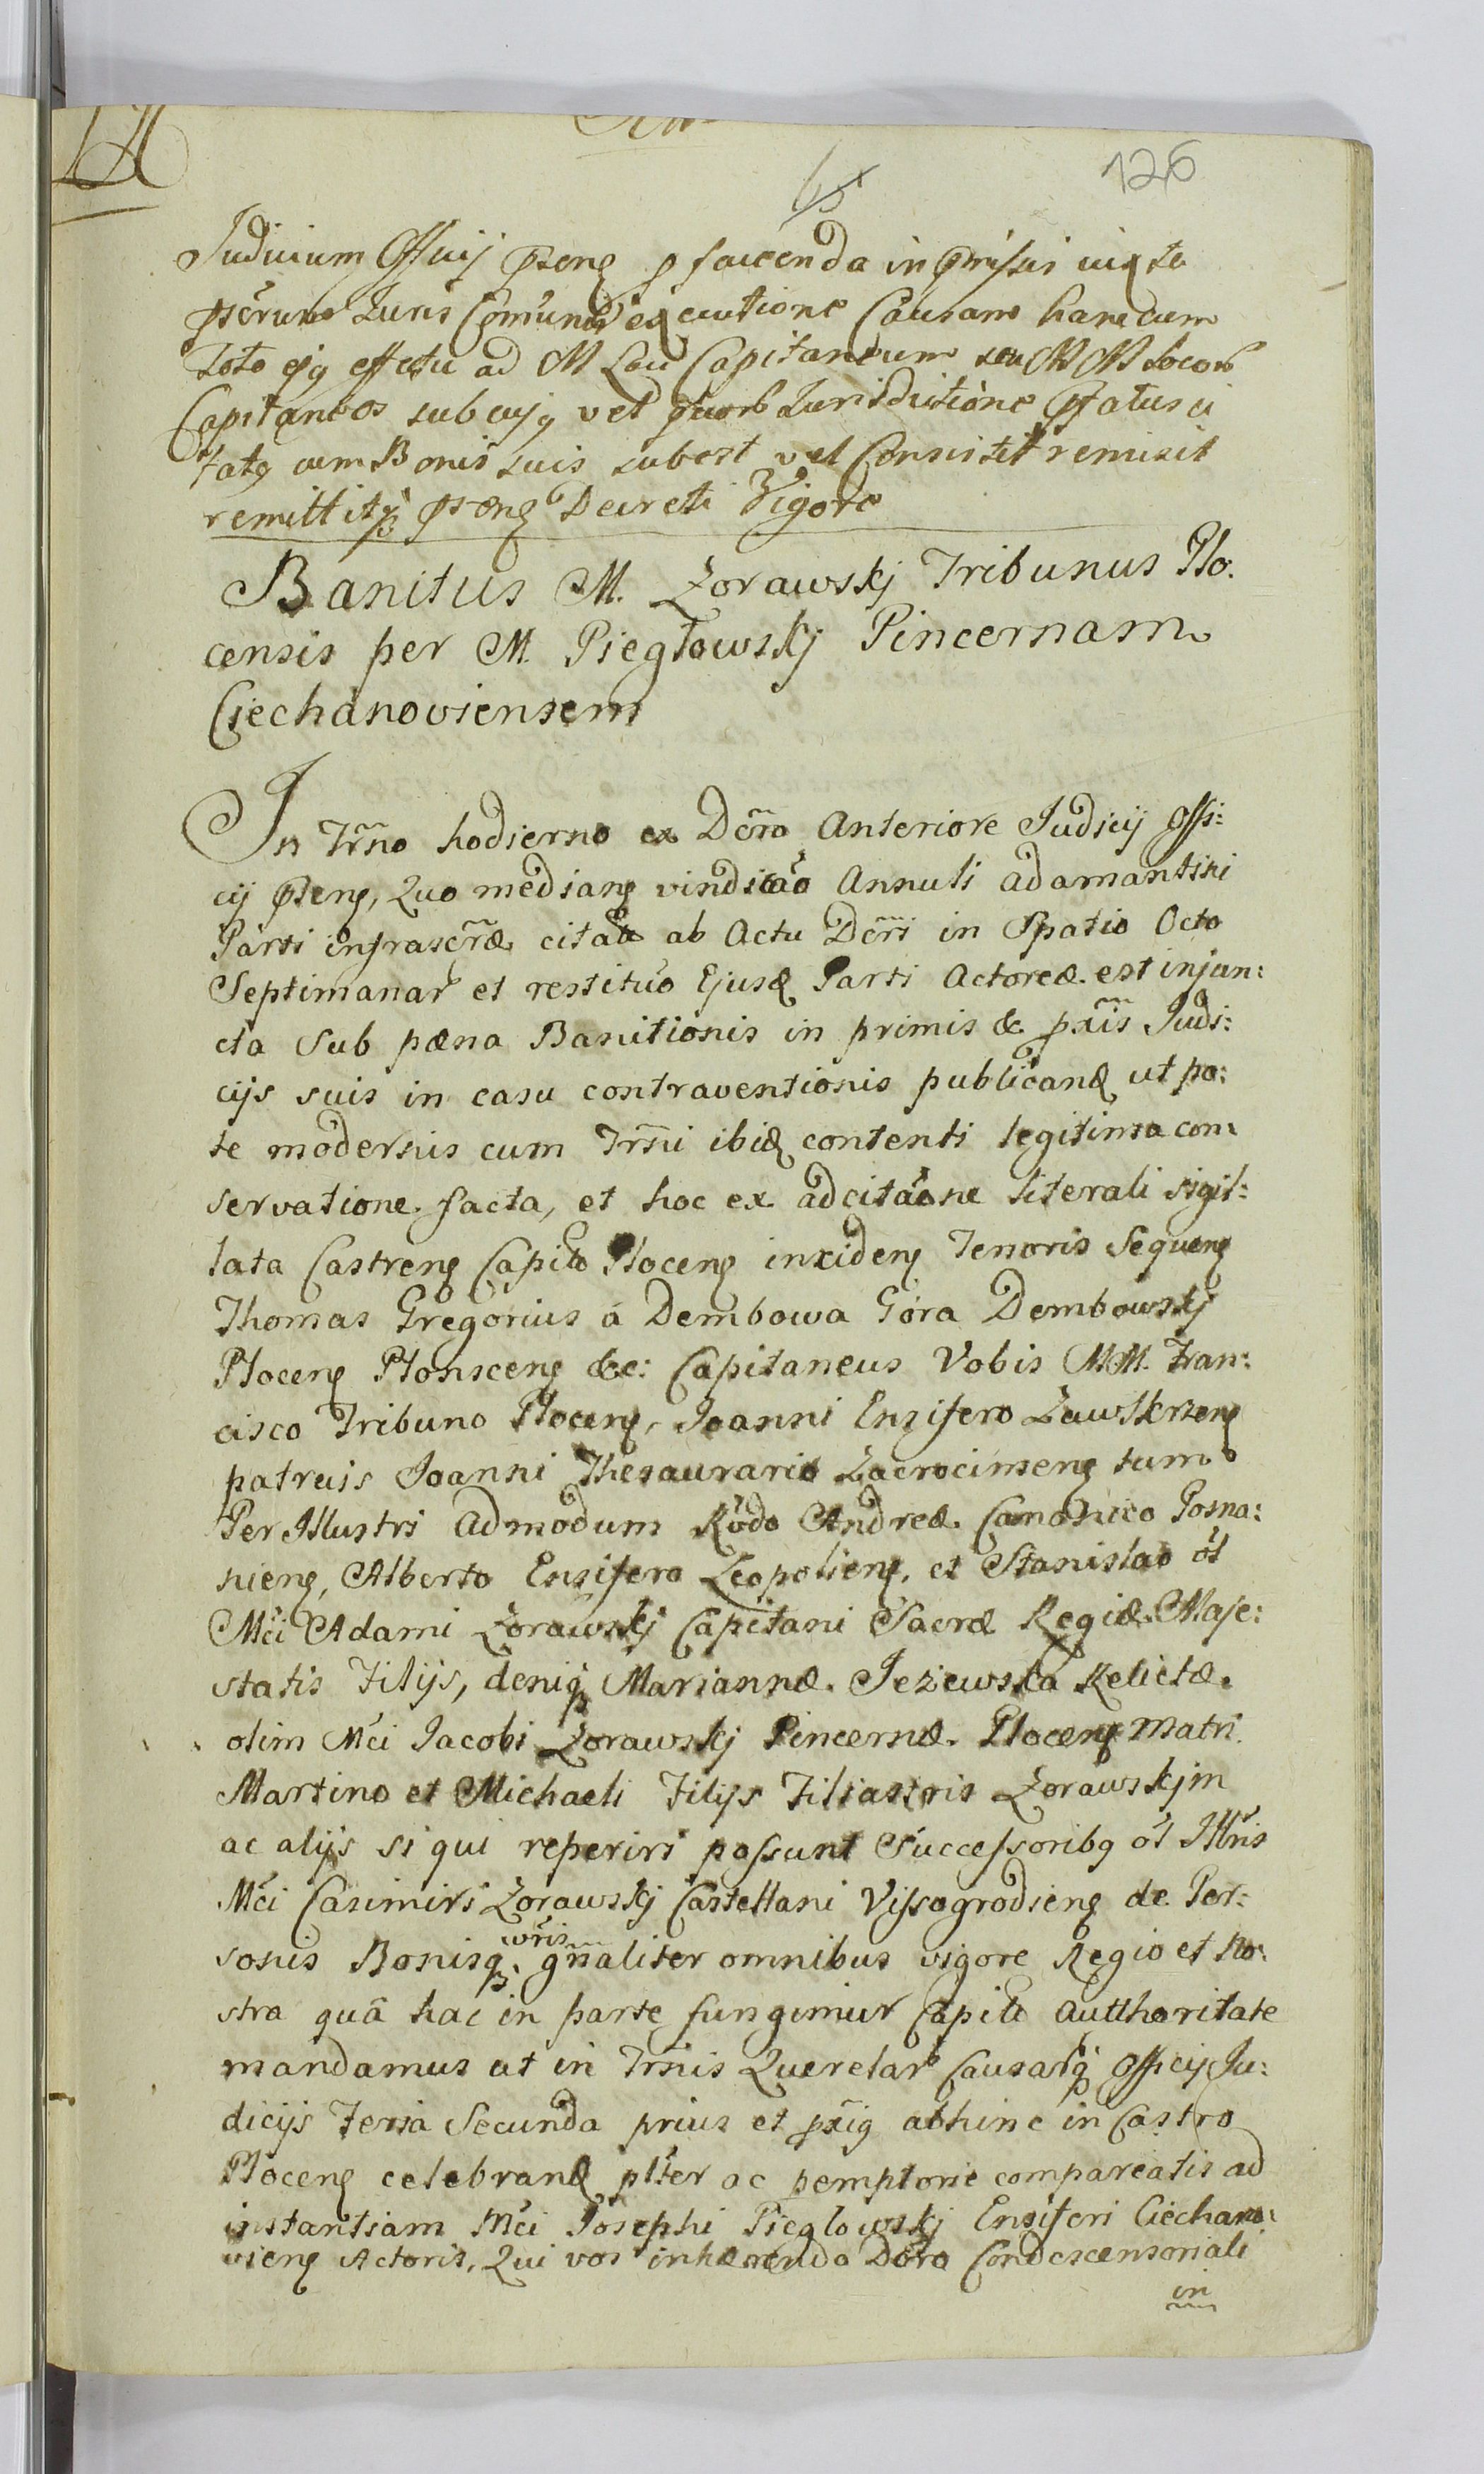 126
Judicium Officij pseng p facienda in pmissis iuxta
pscrum Juris Comunis executione Causam hanc cum
toto ejq effectu ad M Loci Capitaneum seu MM Locor
Capitaneos sub cujq vel quorb Jurisdictione pfatus ci
tatq cum Bonis suis subest vel Consistit remisit
remittitq pseng Decreti Vigore
Banitus M. Zorawskj Tribunus Plo.
censis per M. Piegłowskj Pincernam
Ciechanoviensem
In Trño hodierno ex Dcro Anteriore Judicij Offi:
cij pseng, Quo mediang vindicao Annuli adamantini
Parti infrascræ citatæ ab Actu Dcri in Spatio Octo
Septimanar et restituo Ejusd Parti Actoreæ est injun:
cta Sub pæna Banitionis in primis & pxis Judi:
cijs suis in casu contraventionis publicand ut po:
te modernis cum Trñi ibid contenti legitima con
servatione facta, et hoc ex adcitaone literali sigil:
lata Castreng Capitò Ploceng inxideng Tenoris Sequeng
Thomas Gregorius á Dembowa Góra Dembowskj
Ploceng Płonsceng &c: Capitaneus Vobis MM. Fran:
cisco Tribuno Ploceng, Joanni Ensifero Zawskrzeng
patruis Joanni Thesaurario Zacrocimseng tum
Per Illustri Admodum Rndo Andreæ Canonico Posna:
nieng, Alberto Ensifero Leopolieng, et Stanislao ol
Mci Adami Zorawskj Capitani Sacræ Regiæ Maje:
statis Filijs, deniq Mariannæ Jeziewska Relictæ
olim Mci Jacobi Zorawskj Pincernæ Ploceng Matri
Martino et Michaeli Filijs Filiastris Zorawskjm
ac alijs si qui reperiri possunt Successoribq ol Illris
Mci Casimiri Zorawskj Castellani Vissogrodieng de Per:
sonis Bonisq. vris gñaliter omnibus vigore Regio et No:
stra quâ hac in parte fungimur Capitò Autthoritate
mandamus ut in Trñis Querelar Causarq Officij Ju:
dicijs Feria Secunda prius et pxiq abhinc in Castro
Ploceng celebrand plter ac pemptorie compareatis ad
instantiam Mci Josephi Pieglowskj Ensiferi Ciechano:
vieng Actoris, Qui vos inhærendo Dcro Condescensoriali
in